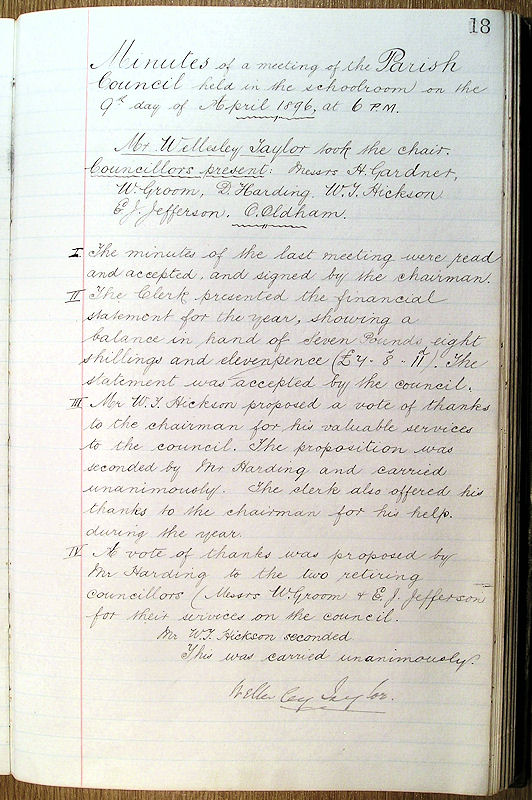 18
Minutes of a meeting of the Parish
Council held in the schoolroom on the
9th day of April 1896, at 6 P.M.
Mr. Wellesley Taylor took the chair.
Councillors present: Messrs H. Gardner,
W. Groom, D. Harding. W. T. Hickson
E. J. Jefferson. C. Oldham.
I The minutes of the last meeting were read
and accepted, and signed by the chairman.
II The Clerk presented the financial
statement for the year, showing a
balance in hand of Seven Pounds, eight
shillings and elevenpence (£7 - 8 - 11). The
statement was accepted by the council.
III Mr W. T. Hickson proposed a vote of thanks
to the chairman for his valuable services
to the council. The proposition was
seconded by Mr Harding and carried
unanimously. The clerk also offered his
thanks to the chairman for his help.
during the year.
IV. A vote of thanks was proposed by
Mr Harding to the two retiring
councillors (Messrs W. Groom & E. J. Jefferson
for their services on the council.
Mr W. T. Hickson seconded
This was carried unanimously.
Wellesley Taylor.